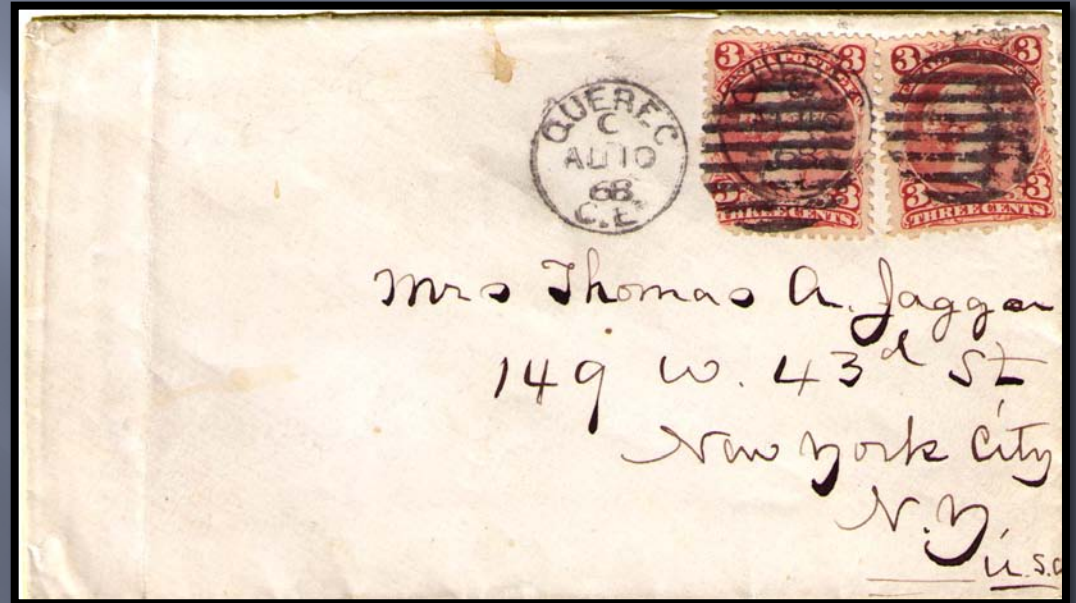 3 3 3 3
QUEBEC
C
AU 10
68
C.E
3 3 3 3
THREE CENTS THREE CENTS
Mrs Thomas A. Jaggar
149 W. 43d St
New York City
N.Y.
U.S.